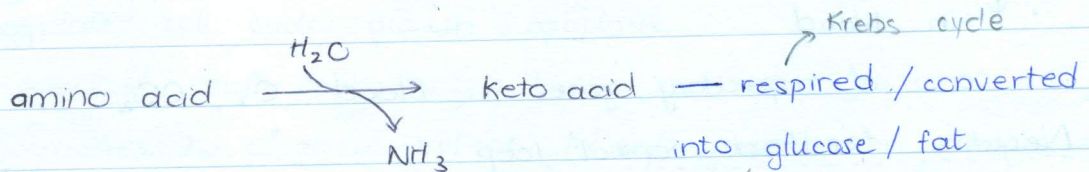 Krebs cycle
H₂O
amino acid → keto acid — respired / converted
NH₃
into glucose / fat